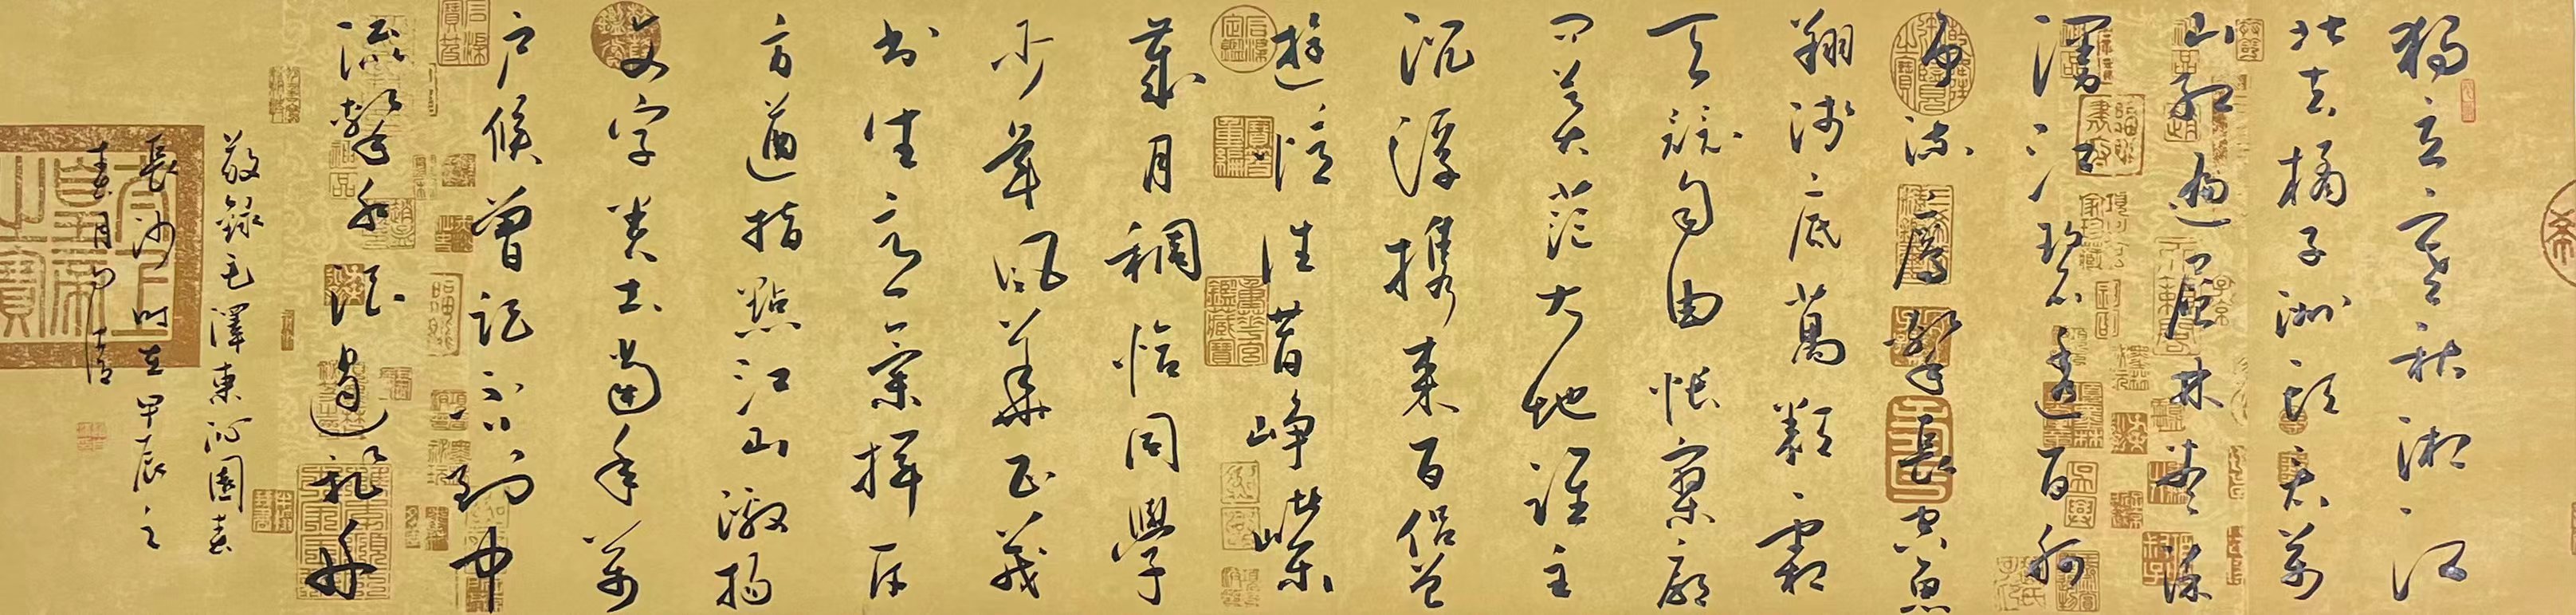 獨立寒秋湘江
北去橘子洲頭看萬
山紅遍層林盡染
漫江碧透百舸
爭流鷹擊長空魚
翔淺底萬類霜
天競自由悵寥廓
問蒼茫大地誰主
沉浮攜來百侶曾
遊憶往昔崢嶸
歲月稠恰同學
少年風華正茂
書生意氣揮斥
方遒指點江山激揚
文字糞土當年萬
戶侯曾記否到中
流擊水浪遏飛舟
敬錄毛澤東沁園春
長沙時在甲辰之
春月
太上皇帝之寶